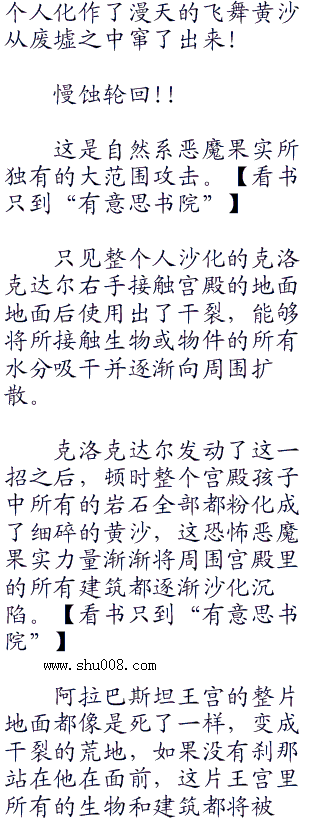 个人化作了漫天的飞舞黄沙
从废墟之中窜了出来！
慢蚀轮回！！
这是自然系恶魔果实所
独有的大范围攻击。【看书
只到“有意思书院”】
只见整个人沙化的克洛
克达尔右手接触宫殿的地面
地面后使用出了干裂，能够
将所接触生物或物件的所有
水分吸干并逐渐向周围扩
散。
克洛克达尔发动了这一
招之后，顿时整个宫殿孩子
中所有的岩石全部都粉化成
了细碎的黄沙，这恐怖恶魔
果实力量渐渐将周围宫殿里
的所有建筑都逐渐沙化沉
陷。【看书只到“有意思书
院”】
www.shu008.com
阿拉巴斯坦王宫的整片
地面都像是死了一样，变成
干裂的荒地，如果没有刹那
站在他在面前，这片王宫里
所有的生物和建筑都将被